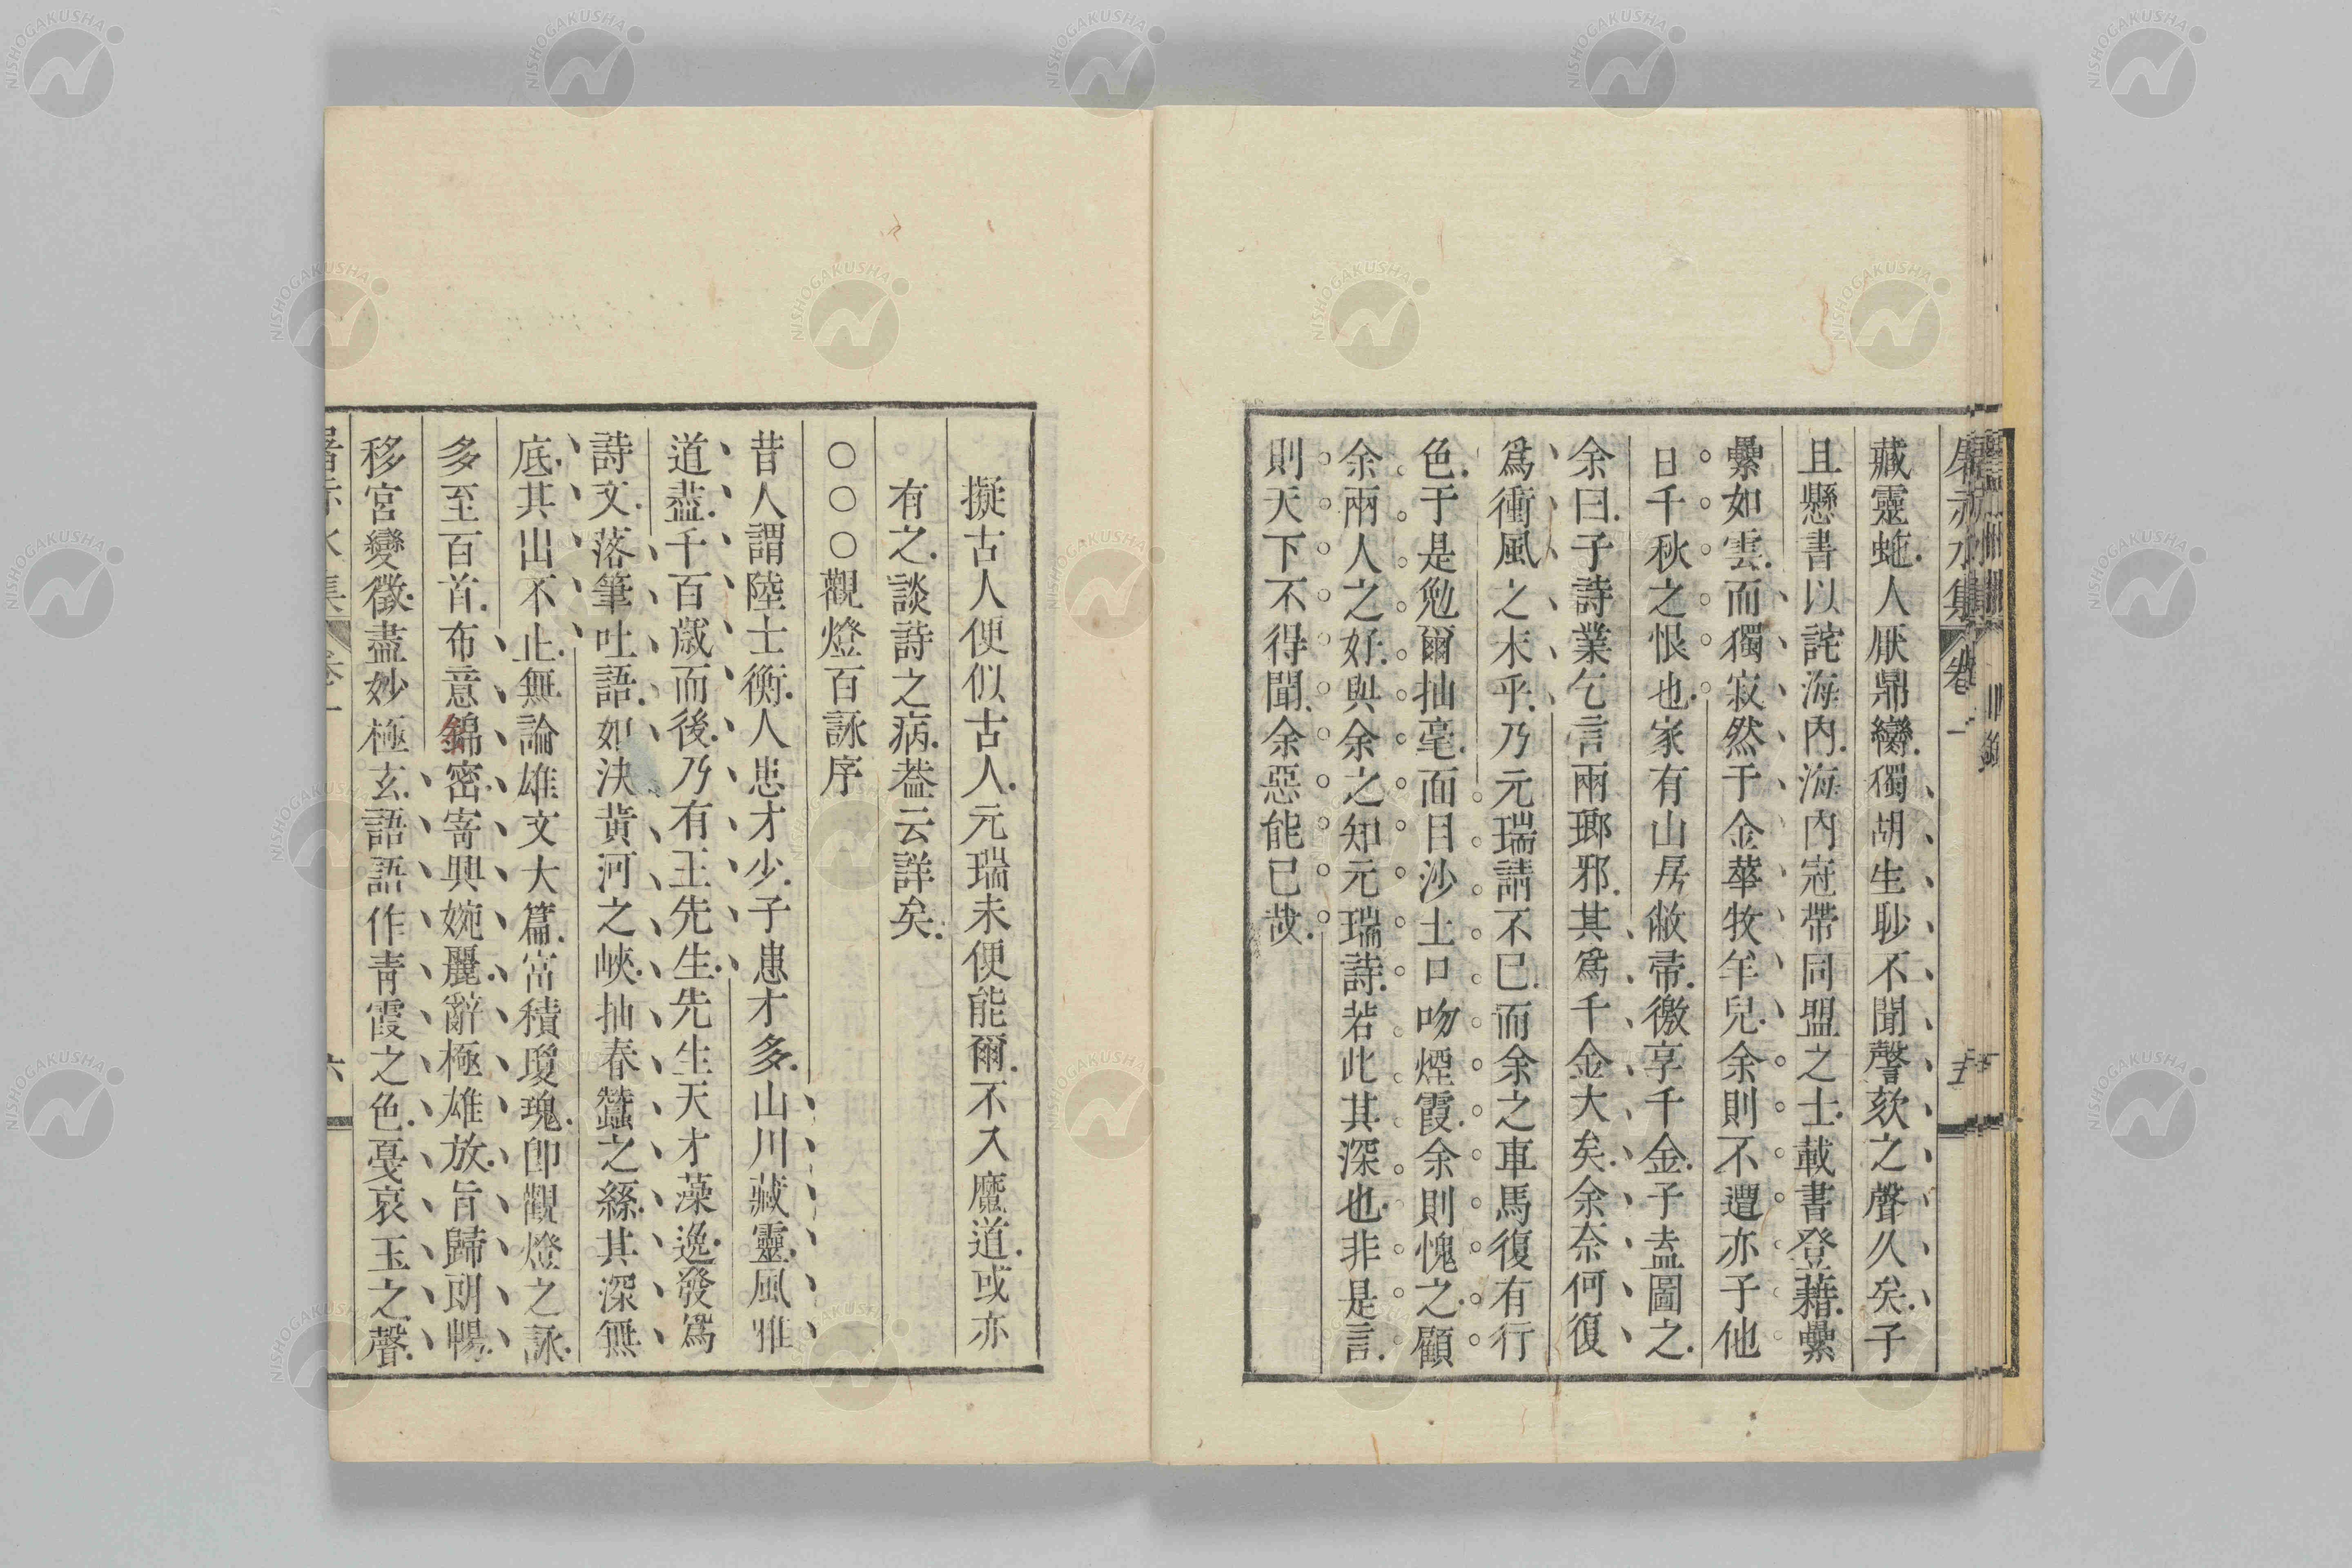 屠赤水集 卷一 五
藏靈虵人厭鼎臠獨胡生耾不聞謦欬之聲久矣子
且懸書以詫海內海內冠帶同盟之士載書登藉纍
纍如雲而獨寂然于金華牧羊兒余則不遭亦子他
日千秋之恨也家有山房敝帚徼享千金子盍圖之
余曰子詩業乞言兩瑯邪其爲千金大矣余奈何復
爲衝風之末乎乃元瑞請不已而余之車馬復有行
色于是勉爾抽毫面目沙土口吻煙霞余則愧之顧
余兩人之好與余之知元瑞詩若此其深也非是言
則天下不得聞余惡能已哉
擬古人便似古人元瑞未便能爾不入魔道或亦
有之談詩之病葢云詳矣
○○○觀燈百詠序
昔人謂陸士衡人患才少子患才多山川藏靈風雅
道盡千百歲而後乃有王先生先生天才藻逸發爲
詩文落筆吐語如決黃河之峽抽春蠶之絲其深無
底其出不止無論雄文大篇富積瓊瑰卽觀燈之詠
多至百首布意錦密寄興婉麗辭極雄放旨歸朗暢
移宮變徵盡妙極玄語語作青霞之色戞哀玉之聲
屠赤水集 卷一 六
NISHOGAKUSHA